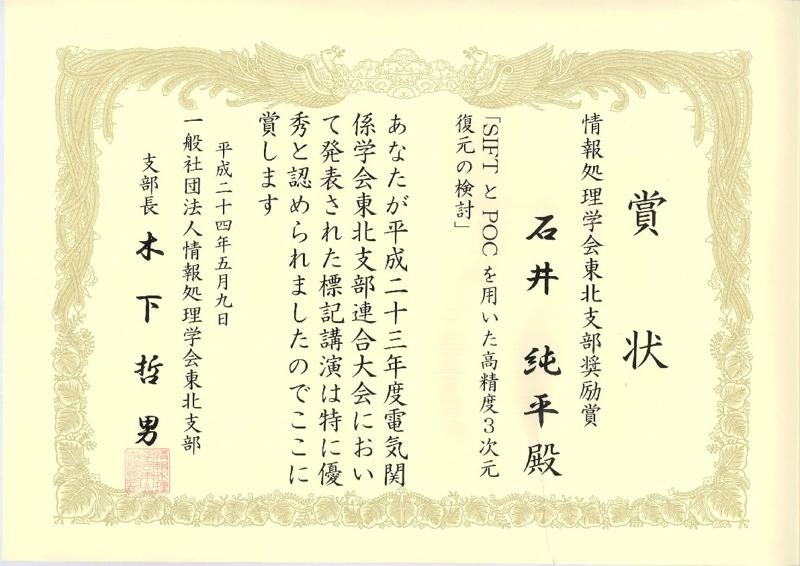 賞状
情報処理学会東北支部奨励賞
石井 純平殿
「SIFTとPOCを用いた高精度3次元
復元の検討」
あなたが平成二十三年度電気関
係学会東北支部連合大会におい
て発表された標記講演は特に優
秀と認められましたのでここに
賞します
平成二十四年五月九日
一般社団法人情報処理学会東北支部
支部長 木下哲男